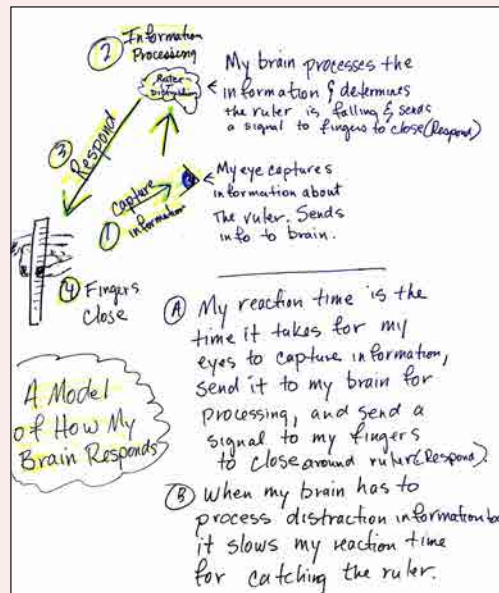 ② Information
Processing
Ruler
+
Distraction
My brain processes the
information & determines
the ruler is falling & sends
a signal to fingers to close (Respond)
③ Respond
① Capture
information
My eye captures
information about
The ruler. Sends
info to brain.
④ Fingers
Close
A Model
of How My
Brain Responds
Ⓐ My reaction time is the
time it takes for my
eyes to capture information,
send it to my brain for
processing, and send a
signal to my fingers
to close around ruler (Respond).
Ⓑ When my brain has to
process distraction information
it slows my reaction time
for catching the ruler.